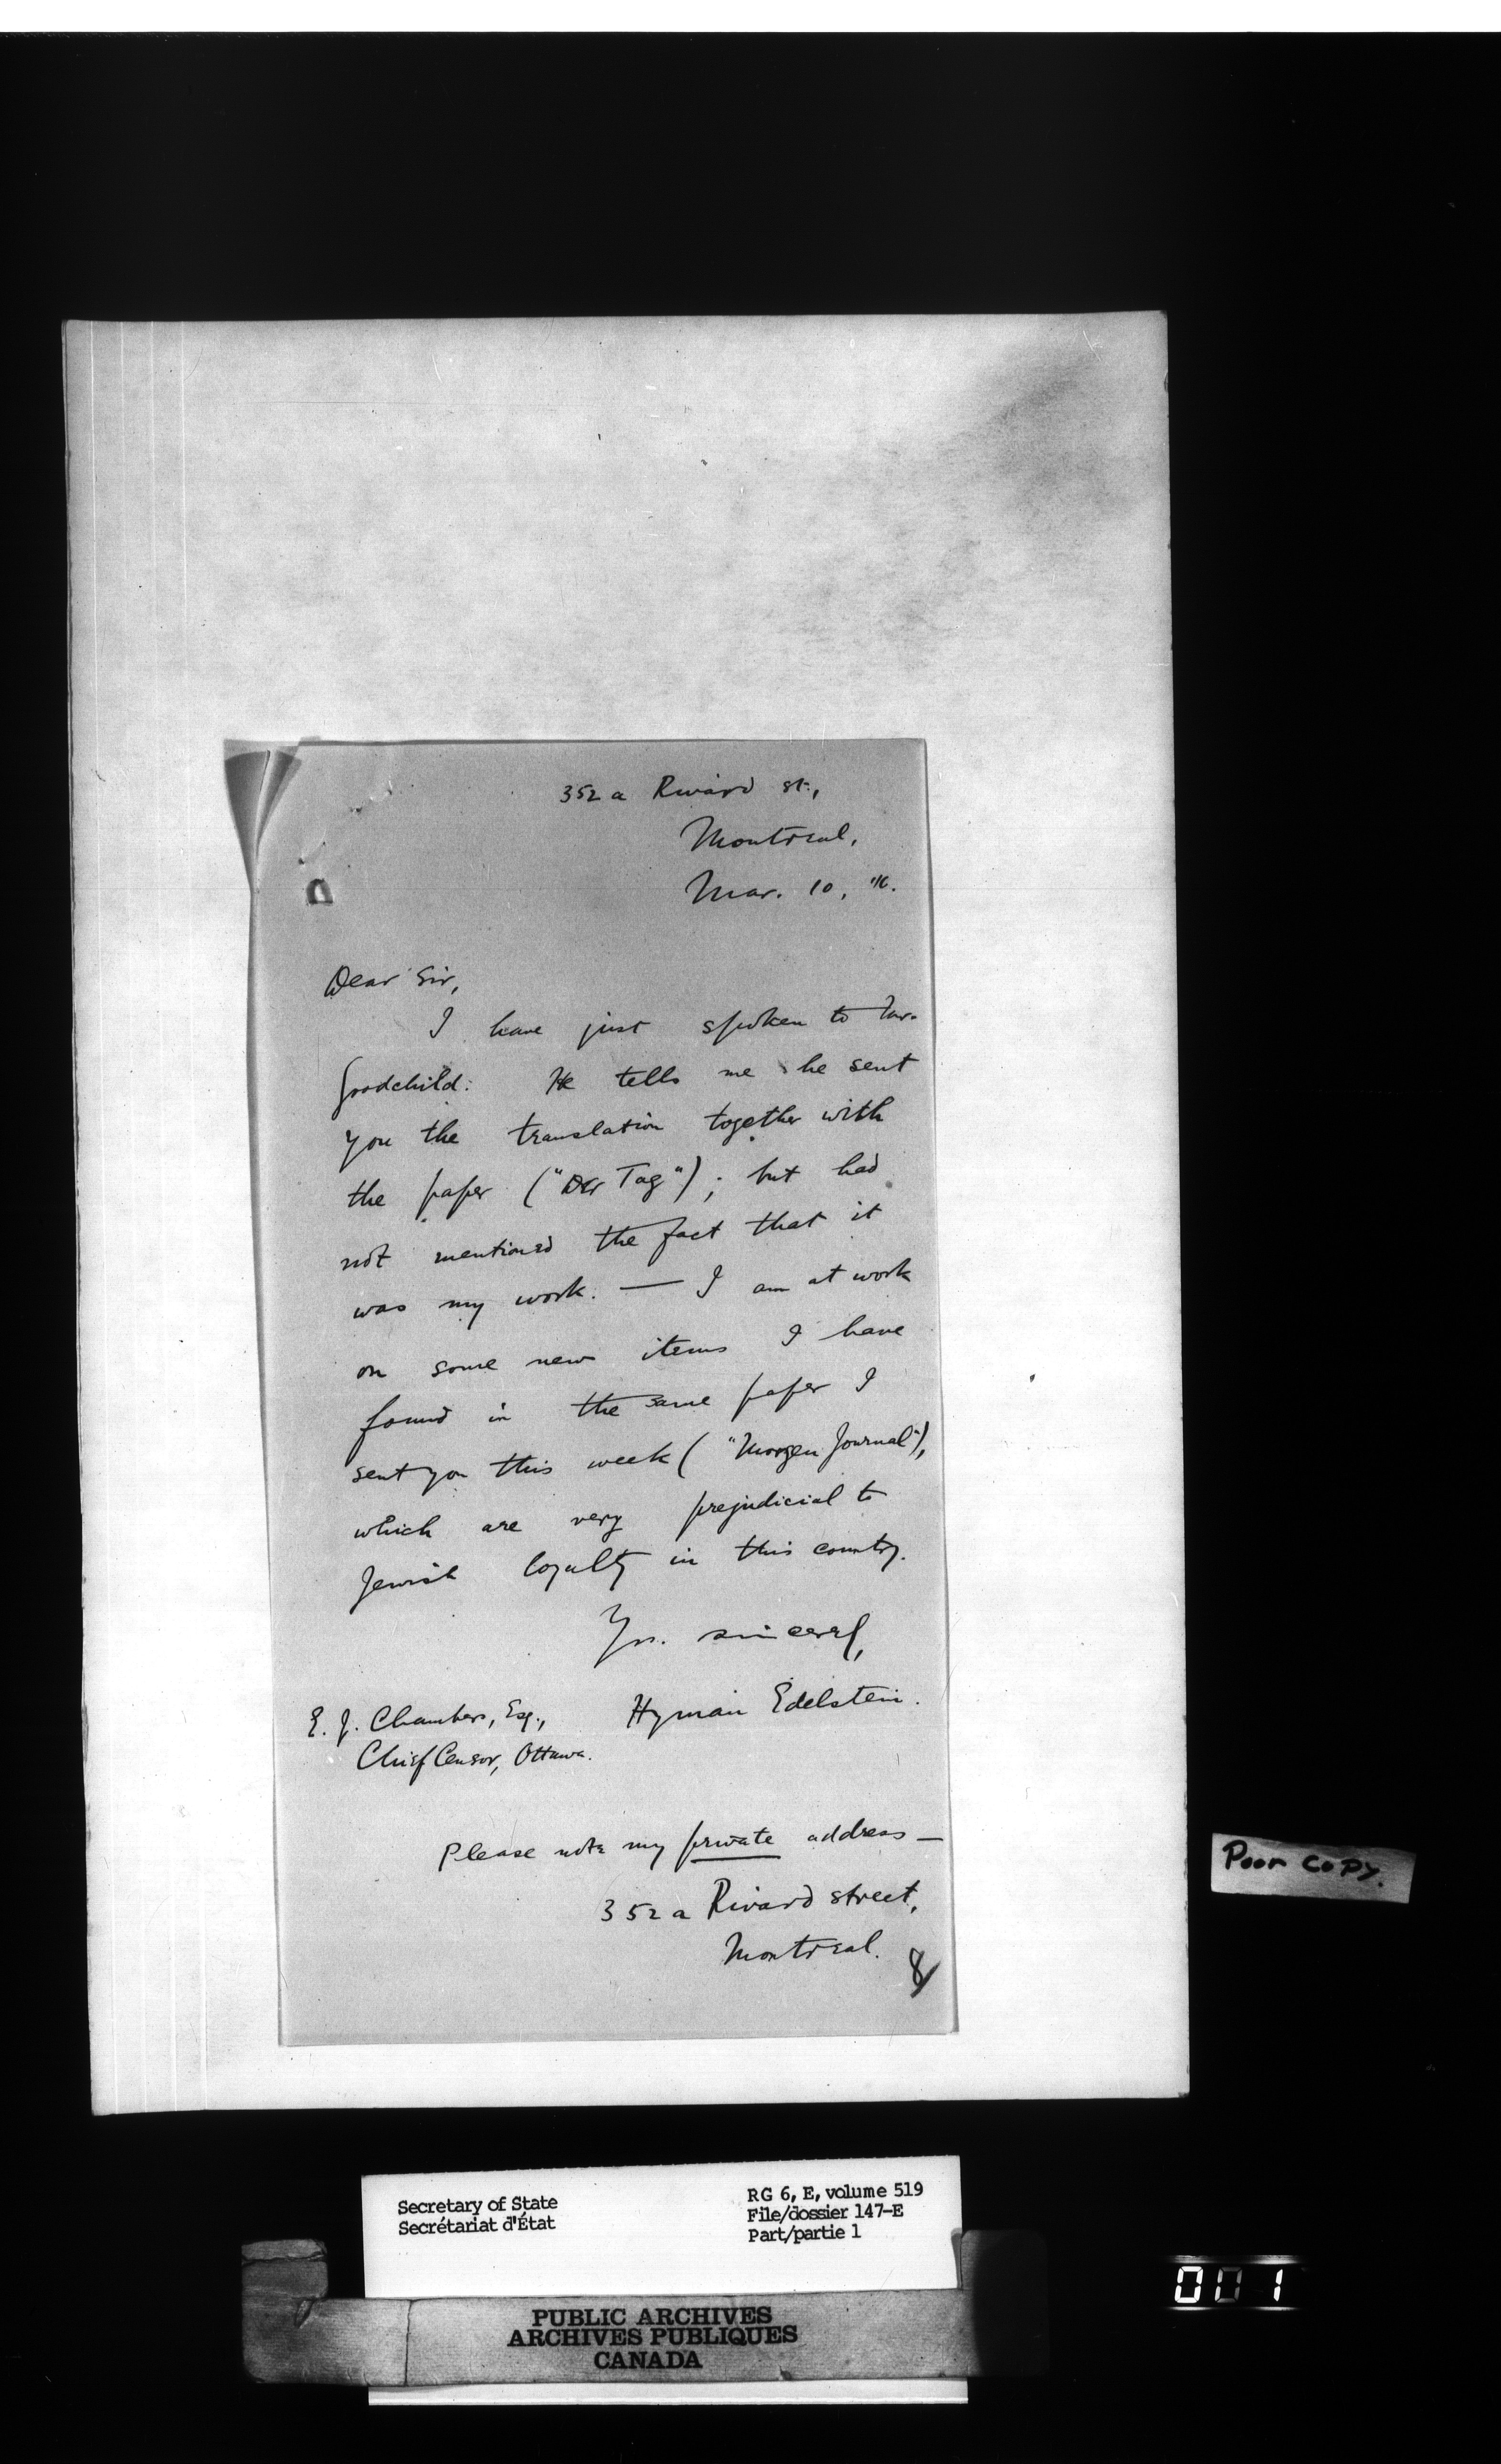 352a Rivard st.,
Montreal,
Mar. 10, '16.
Dear Sir,
I have just spoken to Mr.
Goodchild. He tells me he sent
you the translation together with
the paper ("Der Tag"); but had
not mentioned the fact that it
was my work. — I am at work
on some new items I have
found in the same paper I
sent you this week ("Morgen Journal"),
which are very prejudicial to
Jewish loyalty in this country.
Yrs. sincerely,
Hyman Edelstein.
E. J. Chambers, Esq.,
Chief Censor, Ottawa.
Please note my private address —
352a Rivard street,
Montreal.
8
Poor copy.
Secretary of State
Secrétariat d'État
RG 6, E, volume 519
File/dossier 147-E
Part/partie 1
PUBLIC ARCHIVES
ARCHIVES PUBLIQUES
CANADA
001